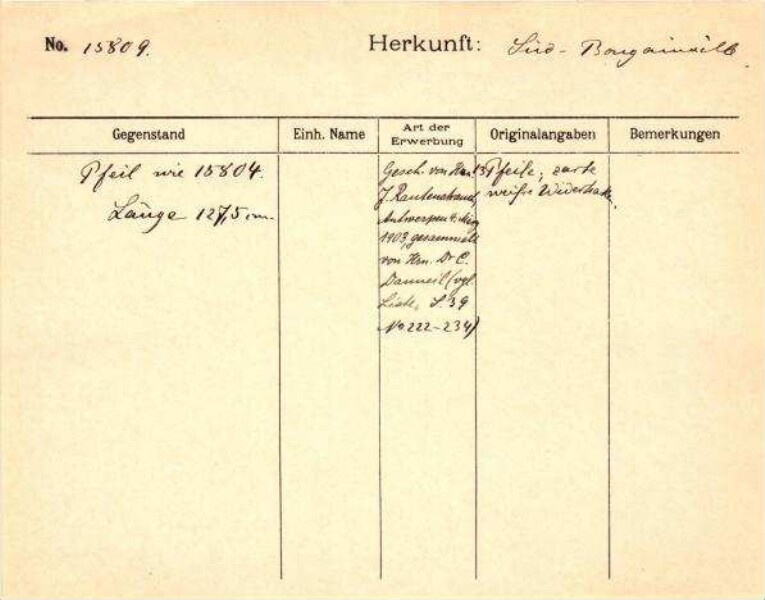 No. 15809.
Herkunft: Süd-Bougainville.
Gegenstand
Einh. Name
Art der Erwerbung
Originalangaben
Bemerkungen
Pfeil wie 15804.
Länge 127,5 cm.
Gesch. von Hrn.
J. Rautenstrauch,
Antwerpen 4. März
1903, gesammelt
von Hrn. Dr C.
Danneil (vgl.
Liste, S. 39
No 222-234)
13 Pfeile; zarte
weiße Widerhaken